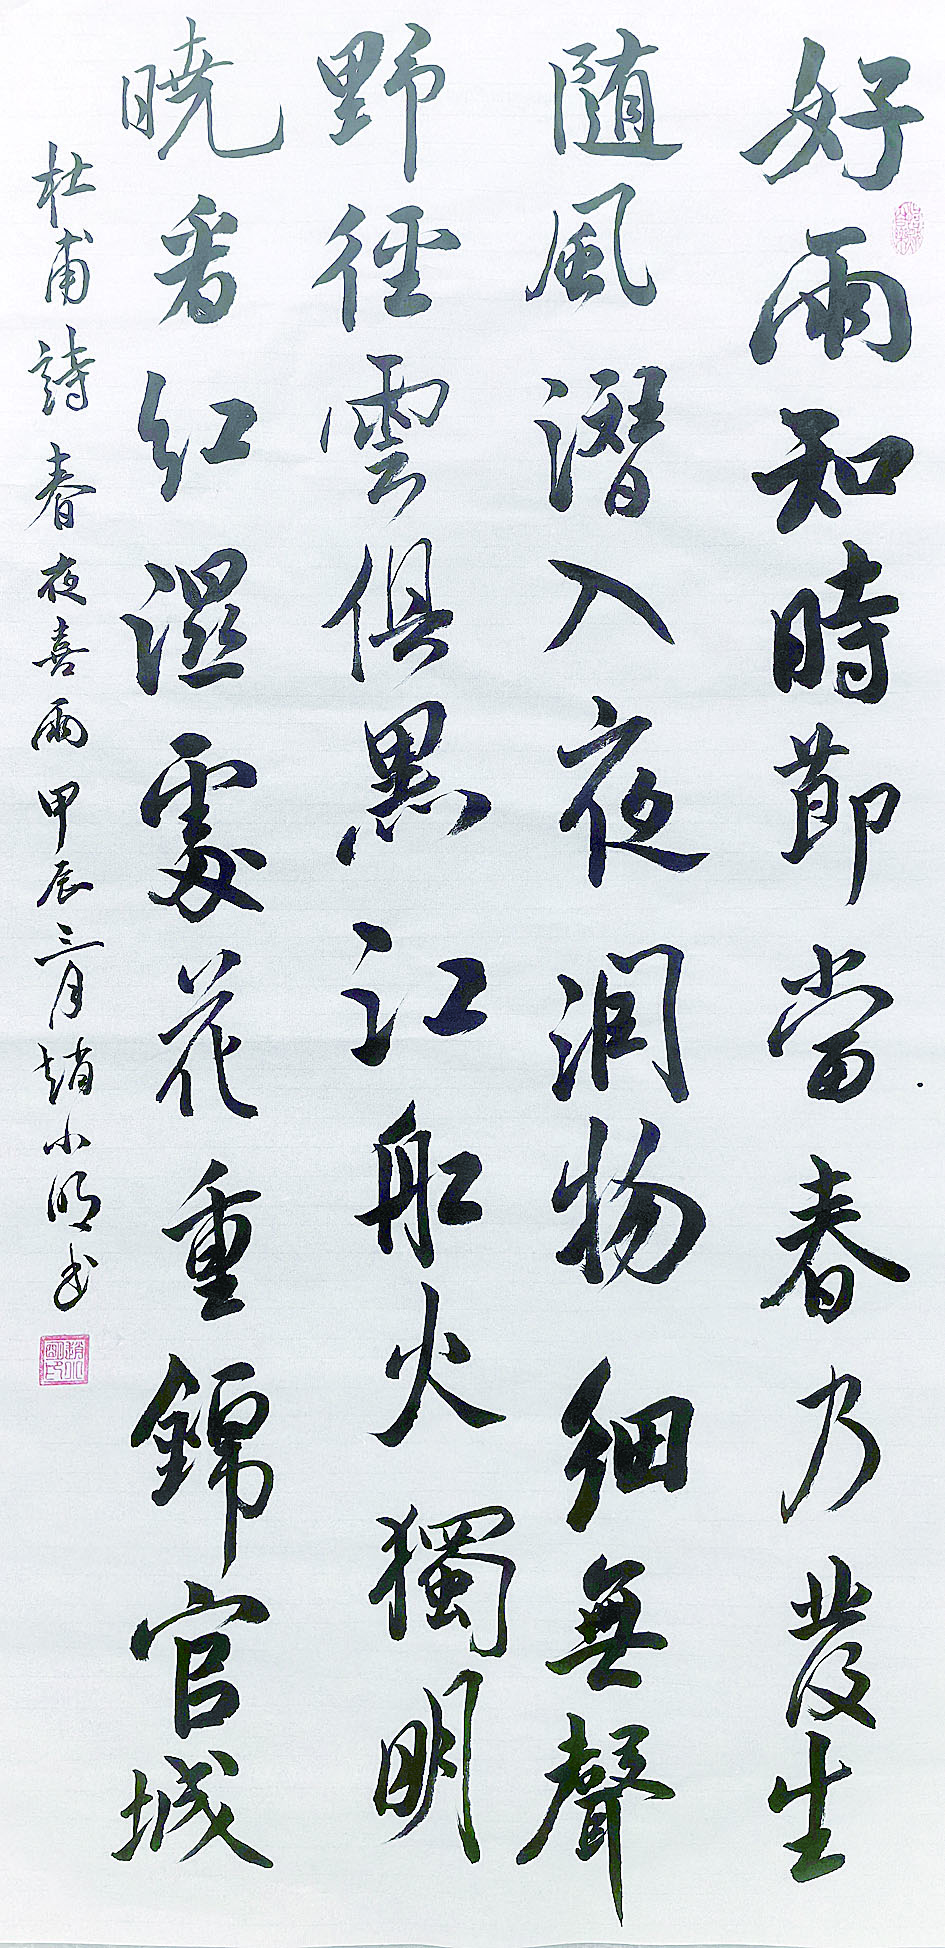 好雨知時節當春乃發生
随風潛入夜润物細無聲
野径雲俱黑江船火獨明
暁看紅濕處花重錦官城
杜甫詩春夜喜雨甲辰三月趙小明书